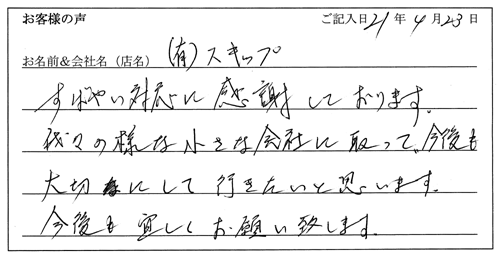 お客様の声 ご記入日 21 年 4 月 23 日
お名前&会社名（店名） (有)スキップ
すばやい対応に感謝しております。
我々の様な小さな会社に取って、今後も
大切にして行きたいと思います。
今後も宜しくお願い致します。